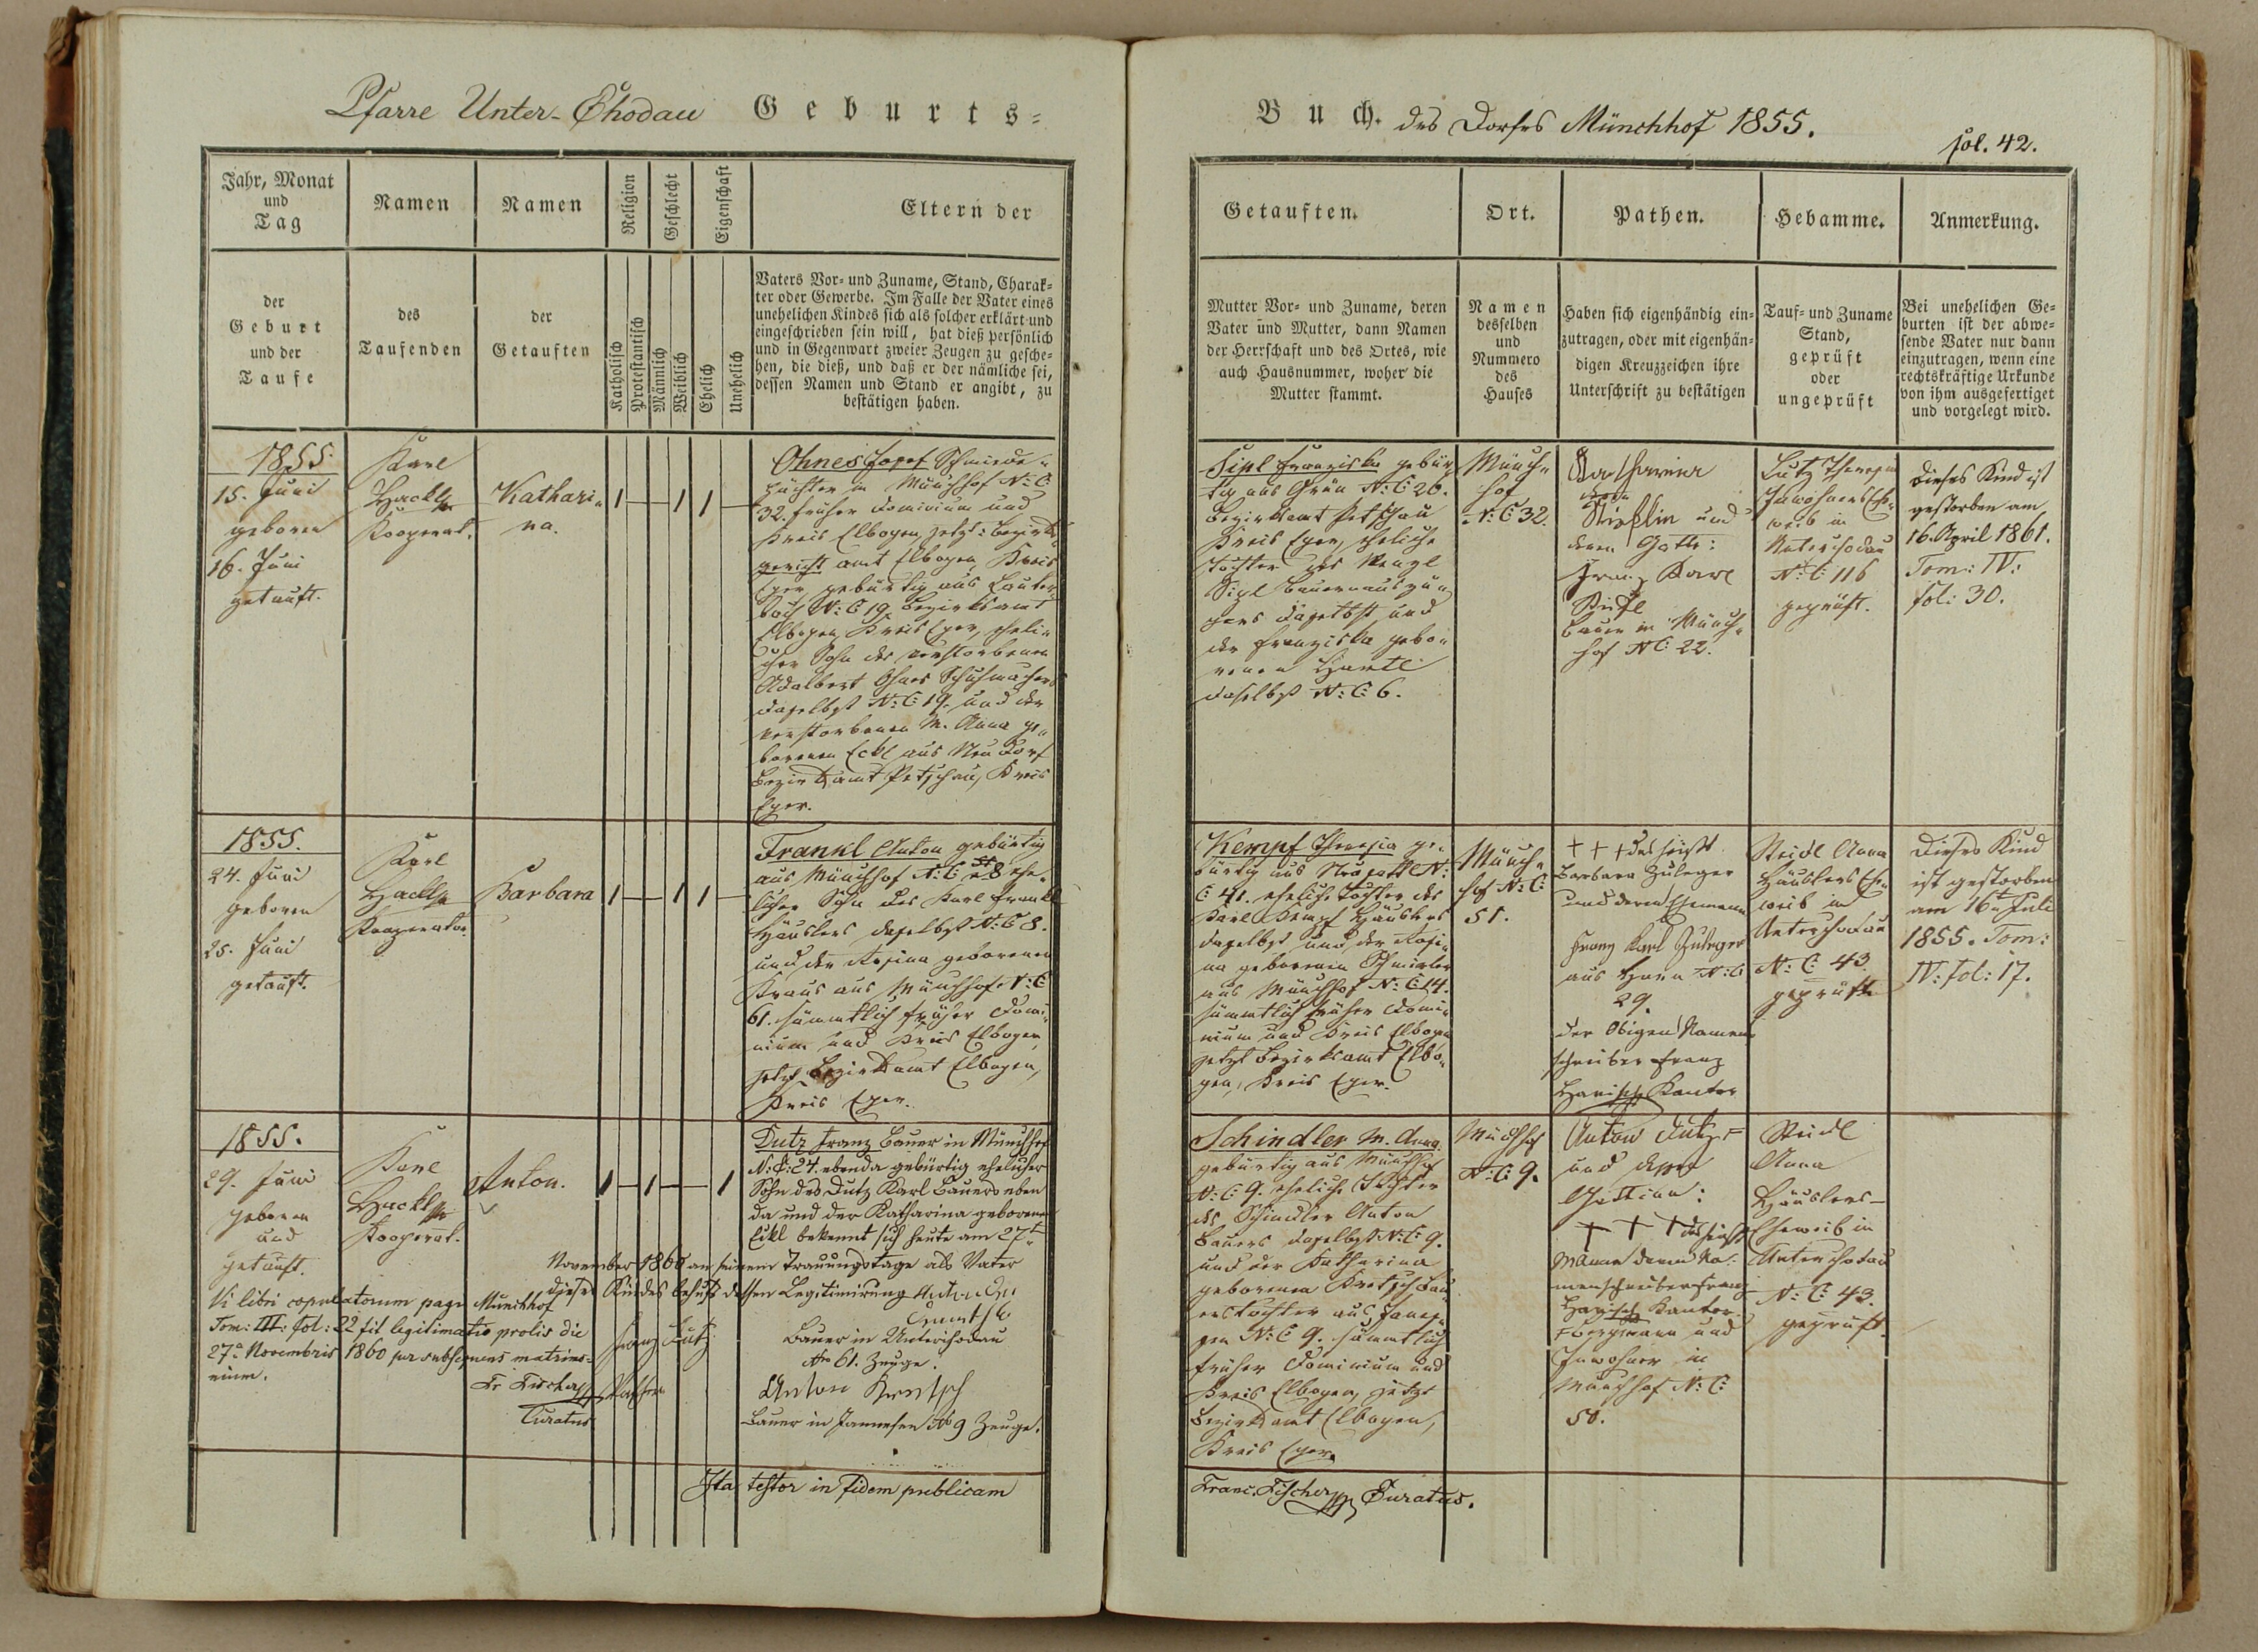 Pfarre Unter-Chodau Geburts=
Jahr, Monat
und
Tag
Namen
Namen
Religion
Geschlecht
Eigenschaft
Eltern der
der
Geburt
und der
Taufe
des
Taufenden
der
Getauften
Katholisch
Protestantisch
Männlich
Weiblich
Ehelich
Unehelich
Vaters Vor- und Zuname, Stand, Charak-
ter oder Gewerbe. Im Falle der Vater eines
unehelichen Kindes sich als solcher erklärt und
eingeschrieben sein will, hat dieß persönlich
und in Gegenwart zweier Zeugen zu gesche-
hen, die dieß, und daß er der nämliche sei,
dessen Namen und Stand er angibt, zu
bestätigen haben.
1855
15. Juni
geboren
16. Juni
getauft.
Karl
Hackl
Kooperat.
Kathari-
na.
1 1 1
Ohnes Josef Schmiede-
pächter in Münchhof N: C
32. früher Dominium und
Kreis Elbogen, jetzt: Bezirks-
gericht amt Elbogen, Kreis
Eger, gebürtig aus Lauter-
bach N: C 19. Bezirksamt
Elbogen, Kreis Eger, eheli-
cher Sohn des verstorbenen
Adalbert Ohnes Schuhmachers
daselbst N: C 19. und der
verstorbenen M. Anna ge-
borenen Eckl aus Neudorf
Bezirksamt Petschau, Kreis
Eger.
1855.
24. Juni
geboren
25. Juni
getauft.
Karl
Hackl
Kooperator
Barbara
1 1 1
Frankl Anton gebürtig
aus Münchhof N: C 8 ehe-
licher Sohn des Karl Frankl
Häuslers daselbst N: C 8.
und der Rosina geborenen
Kraus aus Münchhof N: C
61. sämmtlich früher Domi-
nium und Kreis Elbogen,
jetzt Bezirksamt Elbogen,
Kreis Eger.
1855.
29. Juni
geboren
und
getauft.
Karl
Hackl
Kooperat.
Anton.
1 1 1
Dutz Franz Bauer in Münchhof
N: C: 24. ebenda gebürtig ehelicher
Sohn des Dutz Karl Bauers eben
da und der Katharina geborenen
Eckl bekennt sich heute am 27t
November 1860 an seinem Trauungstage als Vater
dieses Kindes behufs dessen Legitimirung
Vi libri copulatorum pagi Münchhof
Tom: III: fol: 22 fit legitimatio prolis die
27a Novembris 1860 per subsequens matrimo-
nium.
Fr. Fischer
Curatus
Franz Dutz
Vather
Bauer in Unterchodau
Nro 61. Zeuge.
Anton
Bauer in Janessen No 9 Zeuge.
Ita testor in fidem publicam
Buch. des Dorfes Münchhof 1855.
fol. 42.
Getauften.
Ort.
Pathen.
Hebamme.
Anmerkung.
Mutter Vor- und Zuname, deren
Vater und Mutter, dann Namen
der Herrschaft und des Ortes, wie
auch Hausnummer, woher die
Mutter stammt.
Namen
desselben
und
Nummero
des
Hauses
Haben sich eigenhändig ein-
zutragen, oder mit eigenhän-
digen Kreuzzeichen ihre
Unterschrift zu bestätigen
Tauf- und Zuname
Stand,
geprüft
oder
ungeprüft
Bei unehelichen Ge-
burten ist der abwe-
sende Vater nur dann
einzutragen, wenn eine
rechtskräftige Urkunde
von ihm ausgefertiget
und vorgelegt wird.
Sipl Franziska gebür-
tig aus Grün N: C 20.
Bezirksamt Petschau
Kreis Eger, eheliche
Tochter des Wenzl
Sipl Bauernauszüg-
gers daselbst und
der Franziska gebo-
renen Hartl
daselbst N: C 6.
Münch-
hof
N: C 32.
Katharina
und
deren Gatte:
Franz Karl
Bauer in Münch-
hof N C 22.
Lutz Theresia
Inwohners Ehe-
weib in
Unterchodau
N: C: 116
geprüft.
Dieses Kind ist
gestorben am
16. April 1861.
Tom: IV:
fol: 30.
Kempf Theresia ge-
bürtig aus N:
C 41. eheliche Tochter des
Karl Kempf Häuslers
daselbst und der Rosi-
na geborenen
aus Münchhof N: C 14.
sämmtlich früher Domi-
nium und Kreis Elbogen
jetzt Bezirksamt Elbo-
gen, Kreis Eger.
Münch-
hof N: C:
51.
+++ das heißt
Barbara Zuleger
und deren Ehemann
Franz Karl Zuleger
aus N: C
29.
der Obigen Namens
schreiber Franz
Harisch Kantor
Steidl Anna
Häuslers Ehe-
weib in
Unterchodau
N: C: 43
geprüft
Dieses Kind
ist gestorben
am 16t Juli
1855. Tom:
IV: fol: 17.
Schindler M. Anna
gebürtig aus Münchhof
N: C: 9. eheliche Tochter
des Schindler Anton
Bauers daselbst N: C: 9.
und der Katharina
geborenen Bau-
erstochter aus Janes-
sen N: C 9. sämmtlich
früher Dominium und
Kreis Elbogen, jetzt
Bezirksamt Elbogen,
Kreis Eger.
Münchhof
N: C: 9.
Anton Lutz
und dessen
Christina:
+ + + das heißt
Namenschreiber Franz
Harisch Kantor
Bergmann und
Inwohner in
Münchhof N: C:
50.
Steidl
Anna
Häuslers-
Eheweib in
Unterchodau
N: C: 43.
geprüft.
Franc. Fischer Curatus.